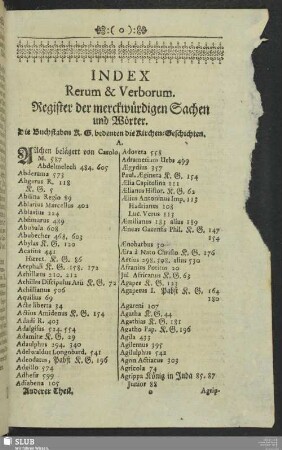 :( o ):
INDEX
Rerum & Verborum.
Register der merckwürdigen Sachen
und Wörter.
Die Buchstaben K. G. bedeuten die Kirchen-Geschichten.
A.
Aachen belägert von Carolo
M. 587
Abdelmelech 484. 605
Abderama 573
Abgarus R. 118
K. G. 5
Abitina Regio 89
Ablavius Marcellus 402
Ablavius 114
Abimarus 489
Abubala 608
Abubecher 468, 603
Abylas K. G. 120
Acatius 441
Hæret. K. G. 86
Acephali K. G. 158, 172
Achillæus 210, 212
Achilles Discipulus Arii K. G. 72
Achilliamus 506
Aquilius 69
Acte liberta 34
Actius Amidenus K. G. 154
Adadi R. 403
Adalgisus 524. 554
Adamite K. G. 29
Adaulphus 294, 340
Adelvaldus Longobard. 541
Adeodatus, Pabst K. G. 196
Adeilis 574
Adhesir 599
Adiabena 105
Anderer Theil.
Adoreta 558
Adrametium Urbs 499
Ægydius 257
Paul. Ægineta K. G. 154
Ælia Capitolina 111
Ælianus Histor. K. G. 62
Ælius Antoninus Imp. 113
Hadrianus 108
Luc. Verus 113
Æmilianus 183 alius 189
Æneas Gazensis Phil. K. G. 147
154
Ænobarbus 50
Æra à Nato Christo K. G. 176
Aetius 295, 298, eius 530
Afranius Potitus 20
Jul. Africanus K. G. 63
Agapes K. G. 123
Agapetus I. Pabst K. G. 164
180
Agareni 107
Agatha K. G. 44
Agathias K. G. 181
Agatho Pap. K. G. 196
Agila 435
Agilemus 595
Agilulphus 542
Agon Actiacus 303
Agricola 74
Agrippa König in Juda 85. 87
Junior 88
Agrip-
SLUB